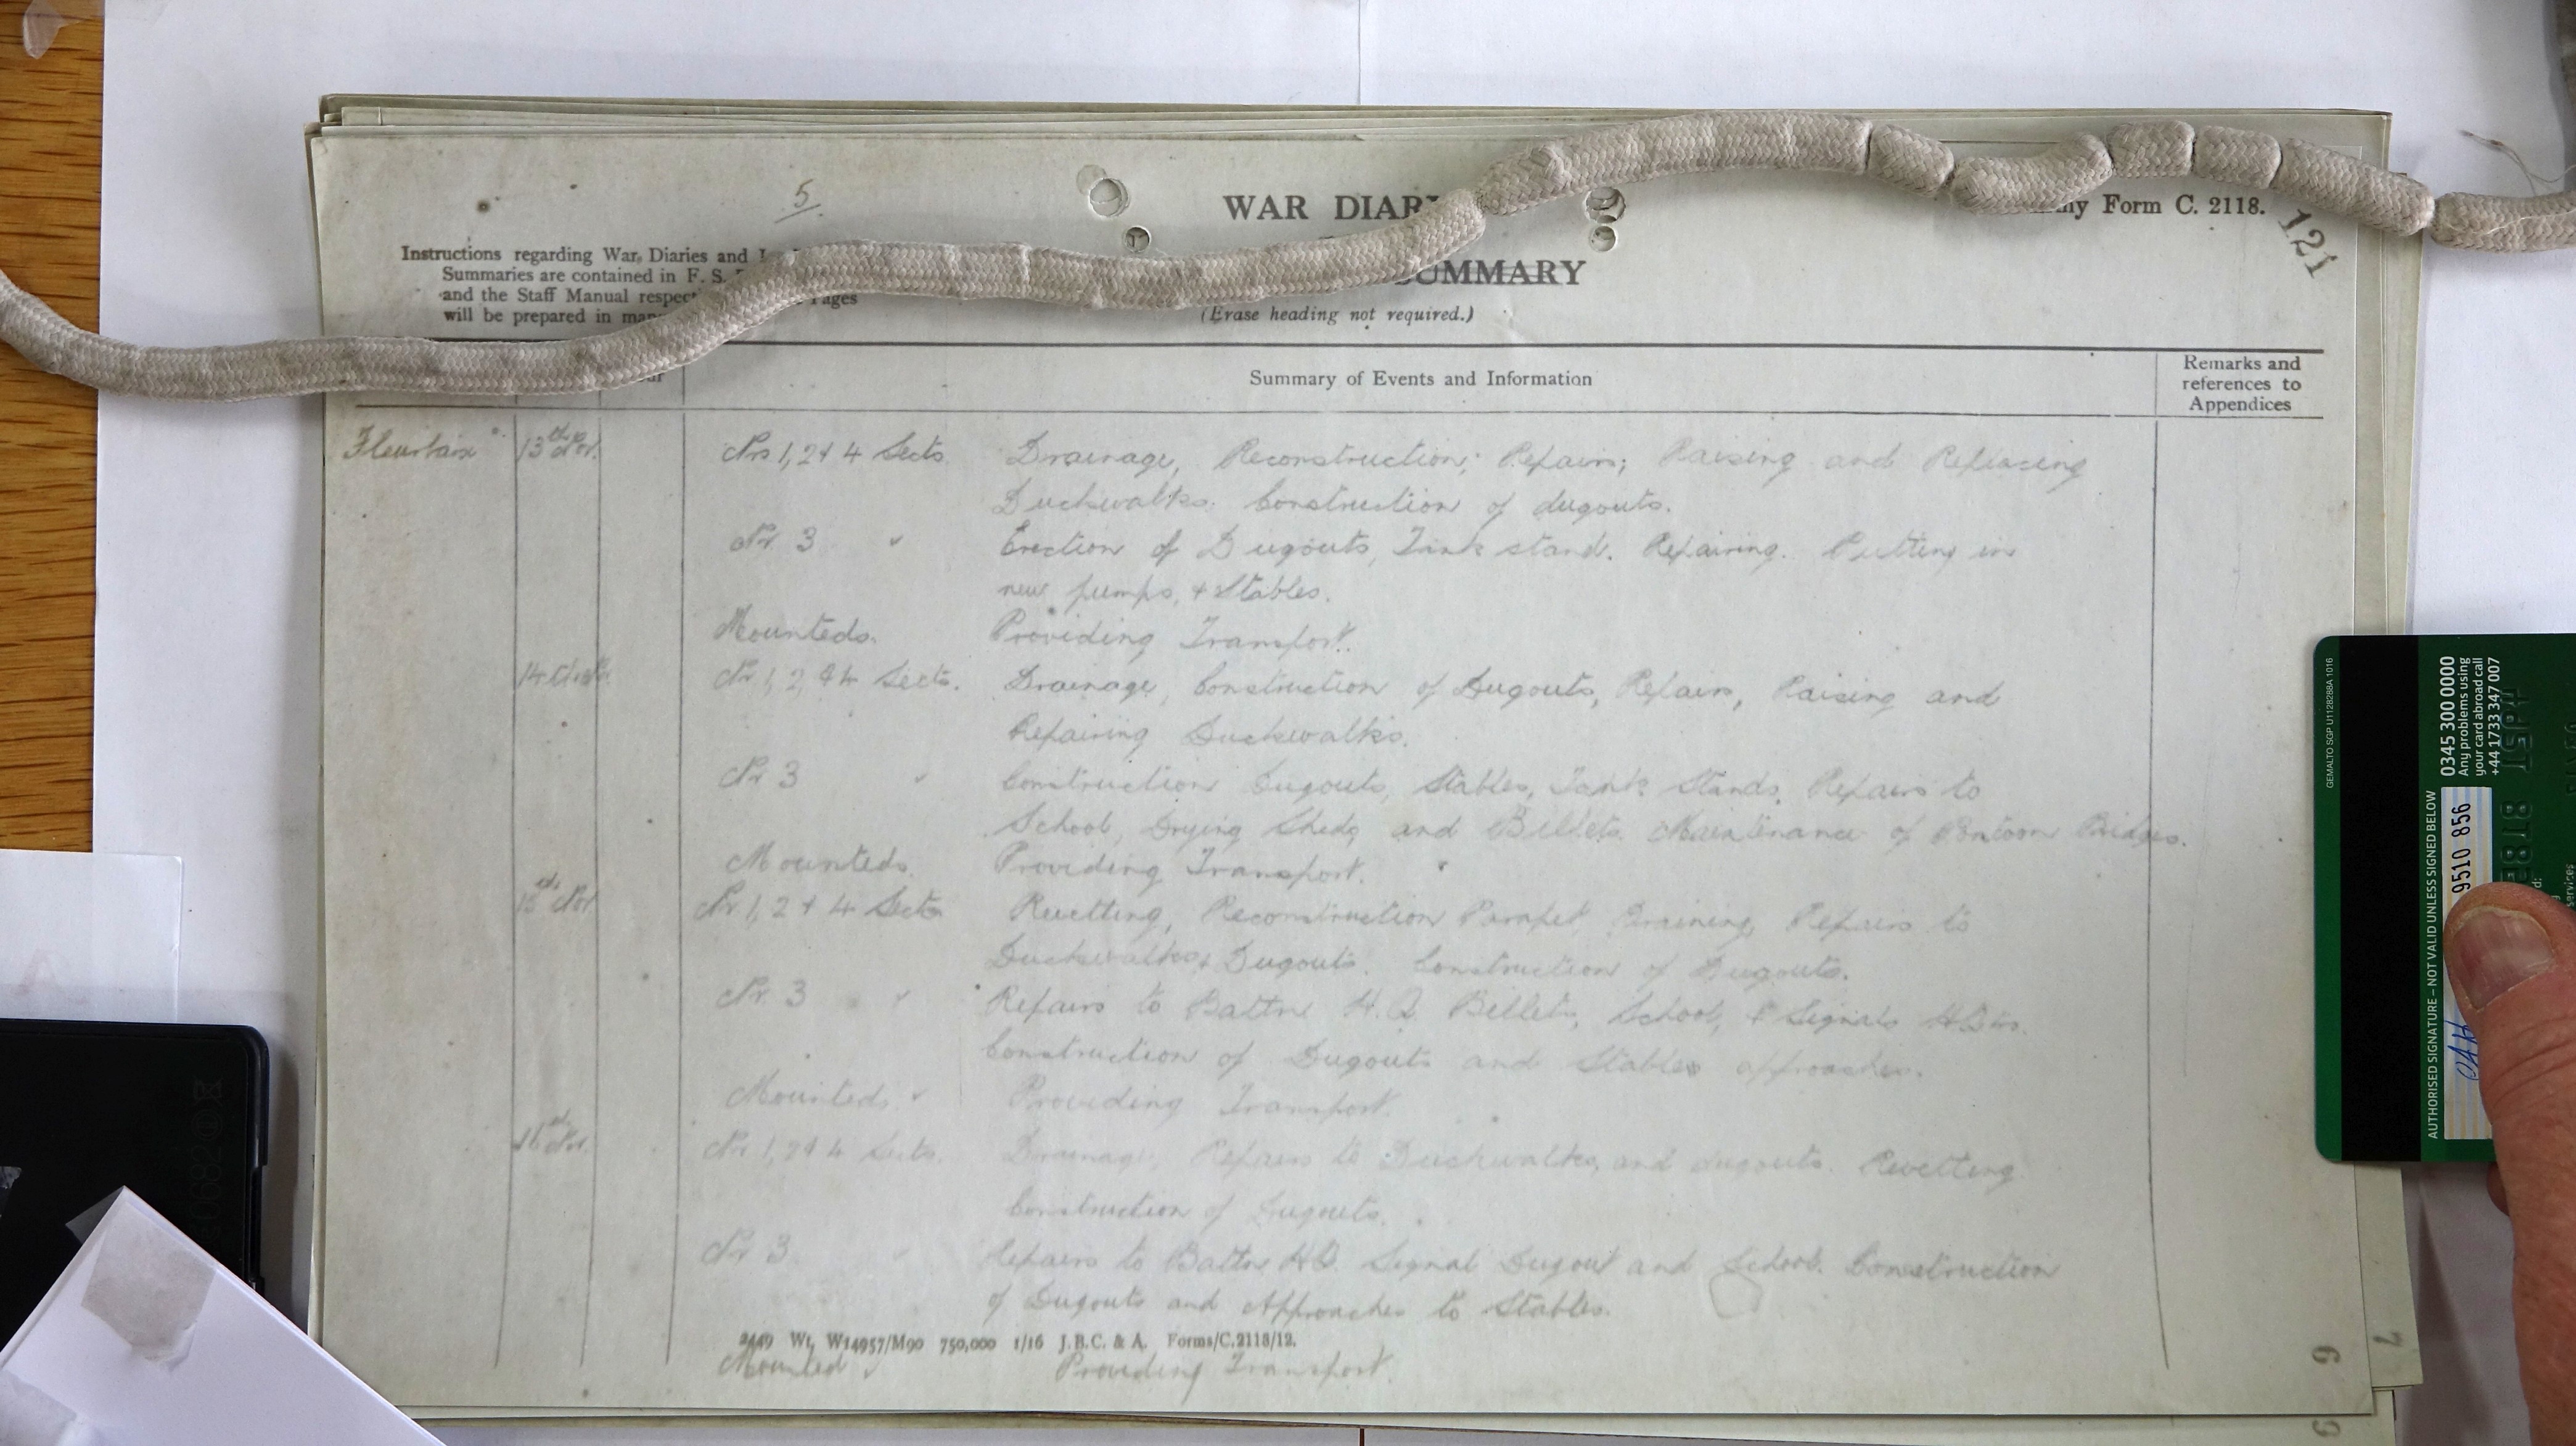 5
WAR DIARY
Army Form C. 2118.
121
Instructions regarding War Diaries and
Summaries are contained in F. S.
and the Staff Manual respec
Pages
will be prepared in man
SUMMARY
(Erase heading not required.)
Summary of Events and Information
Remarks and
references to
Appendices
Fleurbaix 13th Nov. Nos 1, 2 & 4 Sects. Drainage, Reconstruction; Repairs; Raising and Replacing
Duckwalks. Construction of dugouts.
No 3 " Erection of Dugouts, Tank stand. Repairing. Putting in
new pumps, & Stables.
Mounteds. Providing Transport.
14th Nov. No 1, 2, & 4 Sects. Drainage, Construction of Dugouts, Repairs, Raising and
Repairing Duckwalks.
No 3 " Construction Dugouts, Stables, Tank Stands, Repairs to
School, Drying Sheds, and Billets. Maintenance of Pontoon Bridges.
Mounteds. Providing Transport.
15th Nov. No 1, 2 & 4 Sects Revetting, Reconstruction Parapet, Draining, Repairs to
Duckwalks & Dugouts. Construction of Dugouts.
No. 3 " Repairs to Battn H.Q. Billets, School, & Signals
Construction of Dugouts and Stables approaches.
Mounteds. " Providing Transport.
16th Nov. No 1, 2 & 4 Sects. Drainage, Repairs to Duckwalks, and dugouts. Revetting
Construction of Dugouts.
No 3. " Repairs to Battn H.Q. Signal Dugout and School. Construction
of Dugouts and Approaches to Stables.
2449 Wt. W14957/M90 750,000 1/16 J.B.C. & A. Forms/C.2118/12.
Mounted " Providing Transport.
6
7
9
GEMALTO SGP U1128288A 1016
AUTHORISED SIGNATURE – NOT VALID UNLESS SIGNED BELOW
0345 300 0000
Any problems using
your card abroad call
+44 1733 347 007
9510 856
services